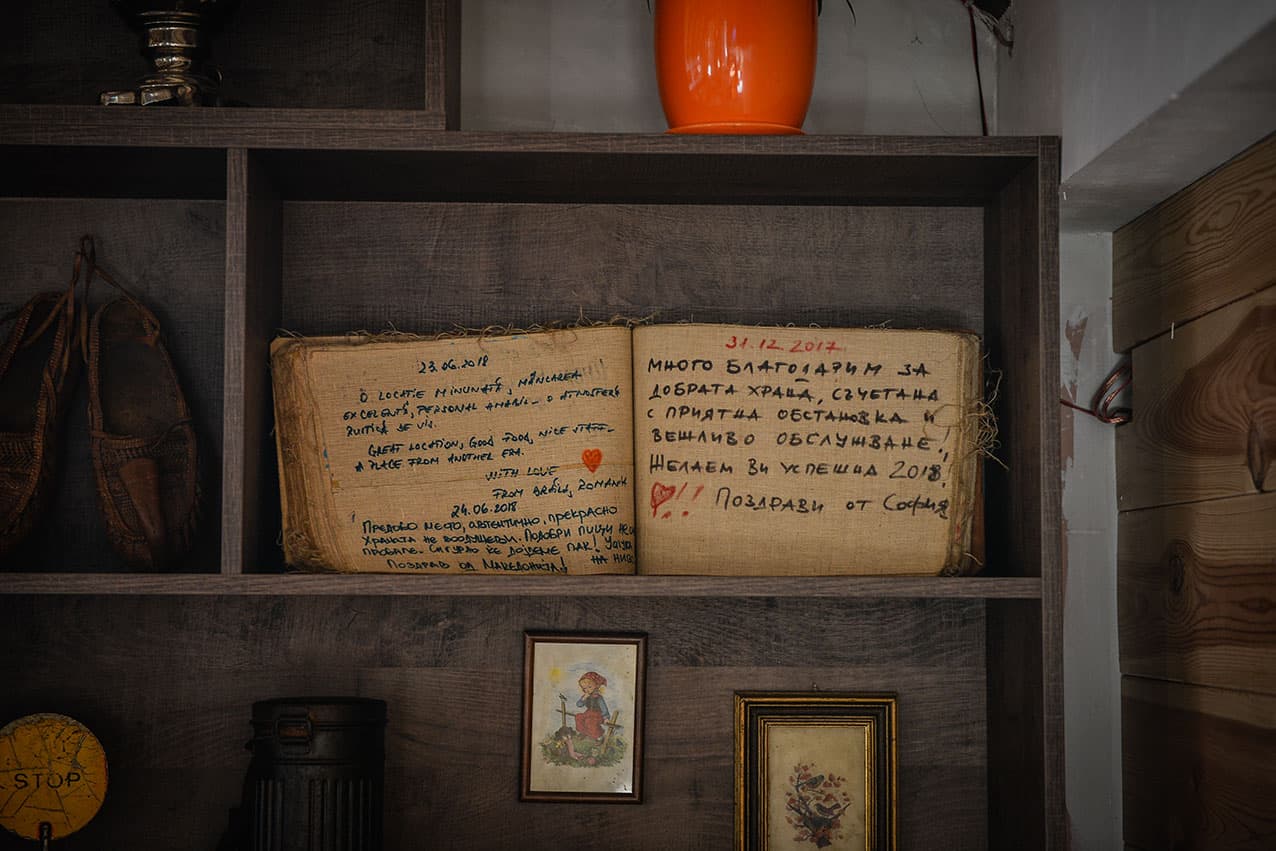 23.06.2018
O LOCATIE MINUNATĂ, MÂNCAREA
EXCELENTĂ, PERSONAL AMABIL – O ATMOSFERĂ
RUSTICĂ DE VIS.
GREAT LOCATION, GOOD FOOD, NICE STAFF –
A PLACE FROM ANOTHER ERA.
WITH LOVE
FROM BRĂILA, ROMANIA
24.06.2018
ПРЕДОБРО МЕСТО, АВТЕНТИЧНО, ПРЕКРАСНО
ХРАНАТА НЕ ВООДУШЕВИ. ПОДОБРИ ПИЦИ НЕ
ПРОБАЛЕ. СИГУРНО ЌЕ ДОЈДЕМЕ ПАК!
НА НИВО
ПОЗДРАВ ОД МАКЕДОНИЈА!
31.12.2017
МНОГО БЛАГОДАРИМ ЗА
ДОБРАТА ХРАНА, СЪЧЕТАНА
С ПРИЯТНА ОБСТАНОВКА И
ВЕЖЛИВО ОБСЛУЖВАНЕ!
ЖЕЛАЕМ ВИ УСПЕШНА 2018!
!! ПОЗДРАВИ ОТ СОФИЯ
STOP